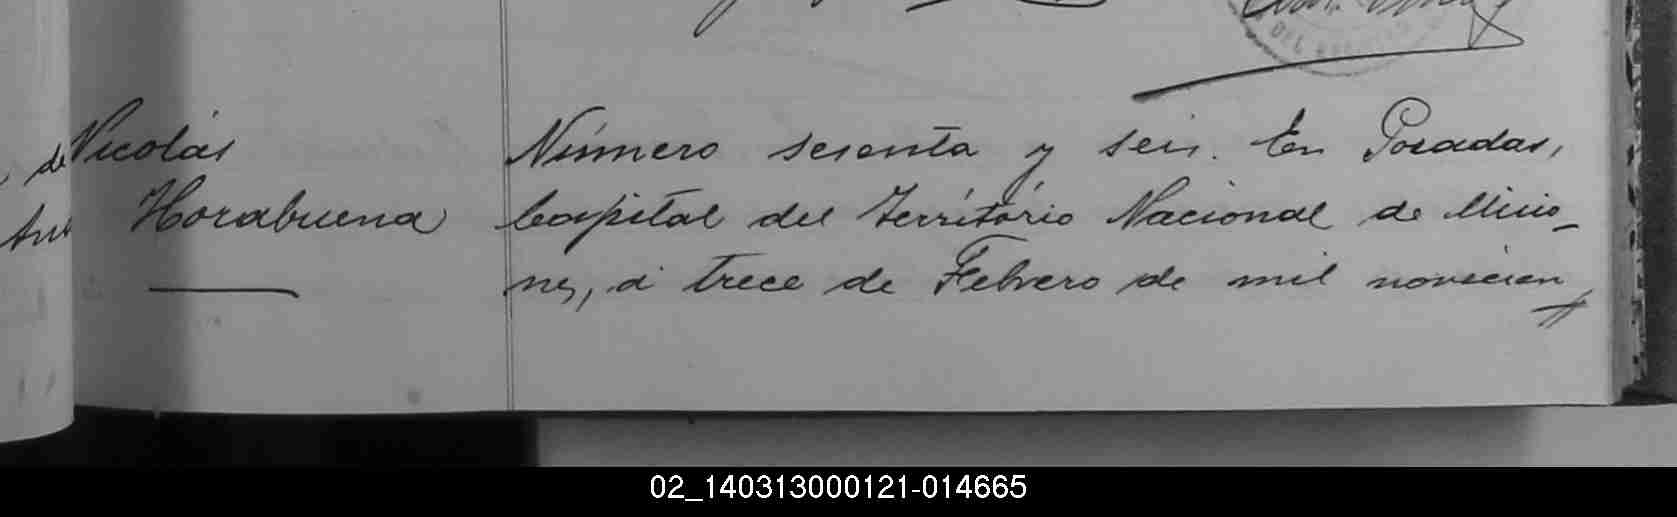 Nicolás
Horabuena
Número sesenta y seis. En Posadas,
Capital del Território Nacional de Misio-
nes, á trece de Febrero de mil novecien
02_140313000121-014665